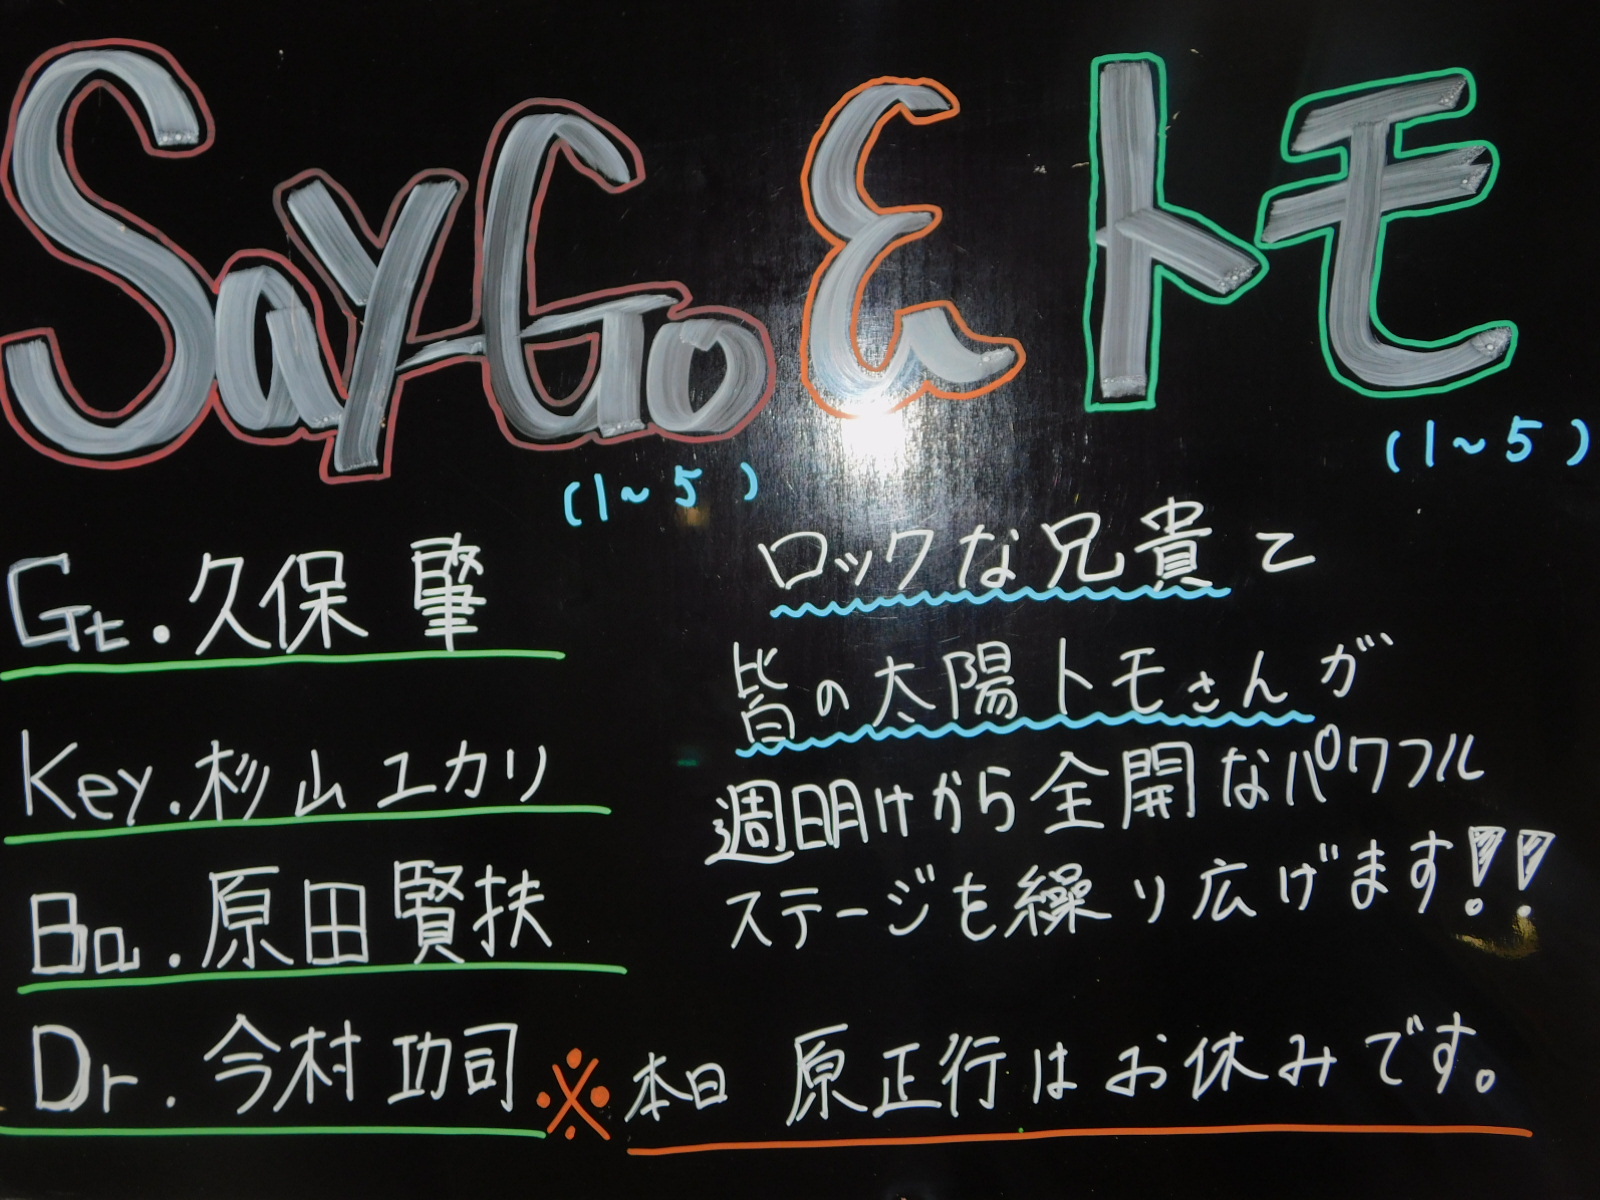 SaY-Go & トモ
(1~5)
(1~5)
Gt.久保 肇
Key.杉山ユカリ
Ba.原田賢扶
Dr.今村功司
ロックな兄貴と
皆の太陽トモさんが
週明けから全開なパワフル
ステージを繰り広げます!!
※本日 原正行はお休みです。